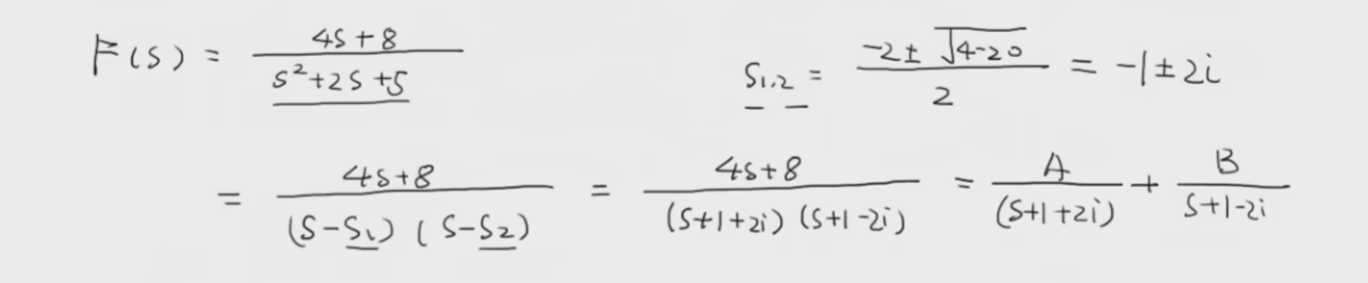 F(s) = (4s+8)/(s²+2s+5)    s₁,₂ = (-2±√(4-20))/2 = -1±2i
= (4s+8)/((s-s₁)(s-s₂)) = (4s+8)/((s+1+2i)(s+1-2i)) = A/(s+1+2i) + B/(s+1-2i)